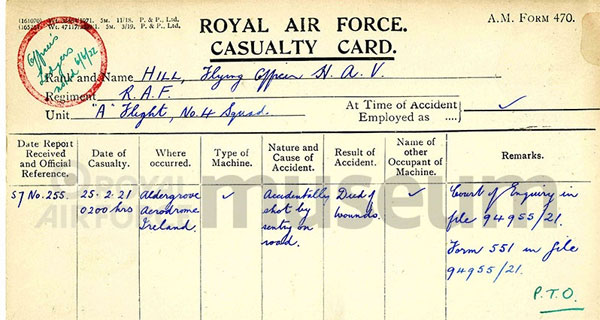 (16107) Wt. 13971. 5M. 11/18. P. & P., Ltd.
Wt. 4717 5M. 3/19. P. & P., Ltd.
A.M. FORM 470.
ROYAL AIR FORCE.
CASUALTY CARD.
Officer's
Ledgers
noted 6/4/22
Rank and Name HILL, Flying Officer H. A. V.
Regiment R.A.F.
Unit "A" Flight, No. 4 Squad.
At Time of Accident
Employed as .... ✓
Date Report Received and Official Reference.
Date of Casualty.
Where occurred.
Type of Machine.
Nature and Cause of Accident.
Result of Accident.
Name of other Occupant of Machine.
Remarks.
S7 No. 255.
25. 2. 21
0200 hrs
Aldergrove
Aerodrome
Ireland.
✓
Accidentally
shot by
sentry on
road.
Died of
wounds.
✓
Court of Enquiry in
file 94955/21.
Form 551 in file
94955/21.
P.T.O.
ROYAL
AIR FORCE
museum